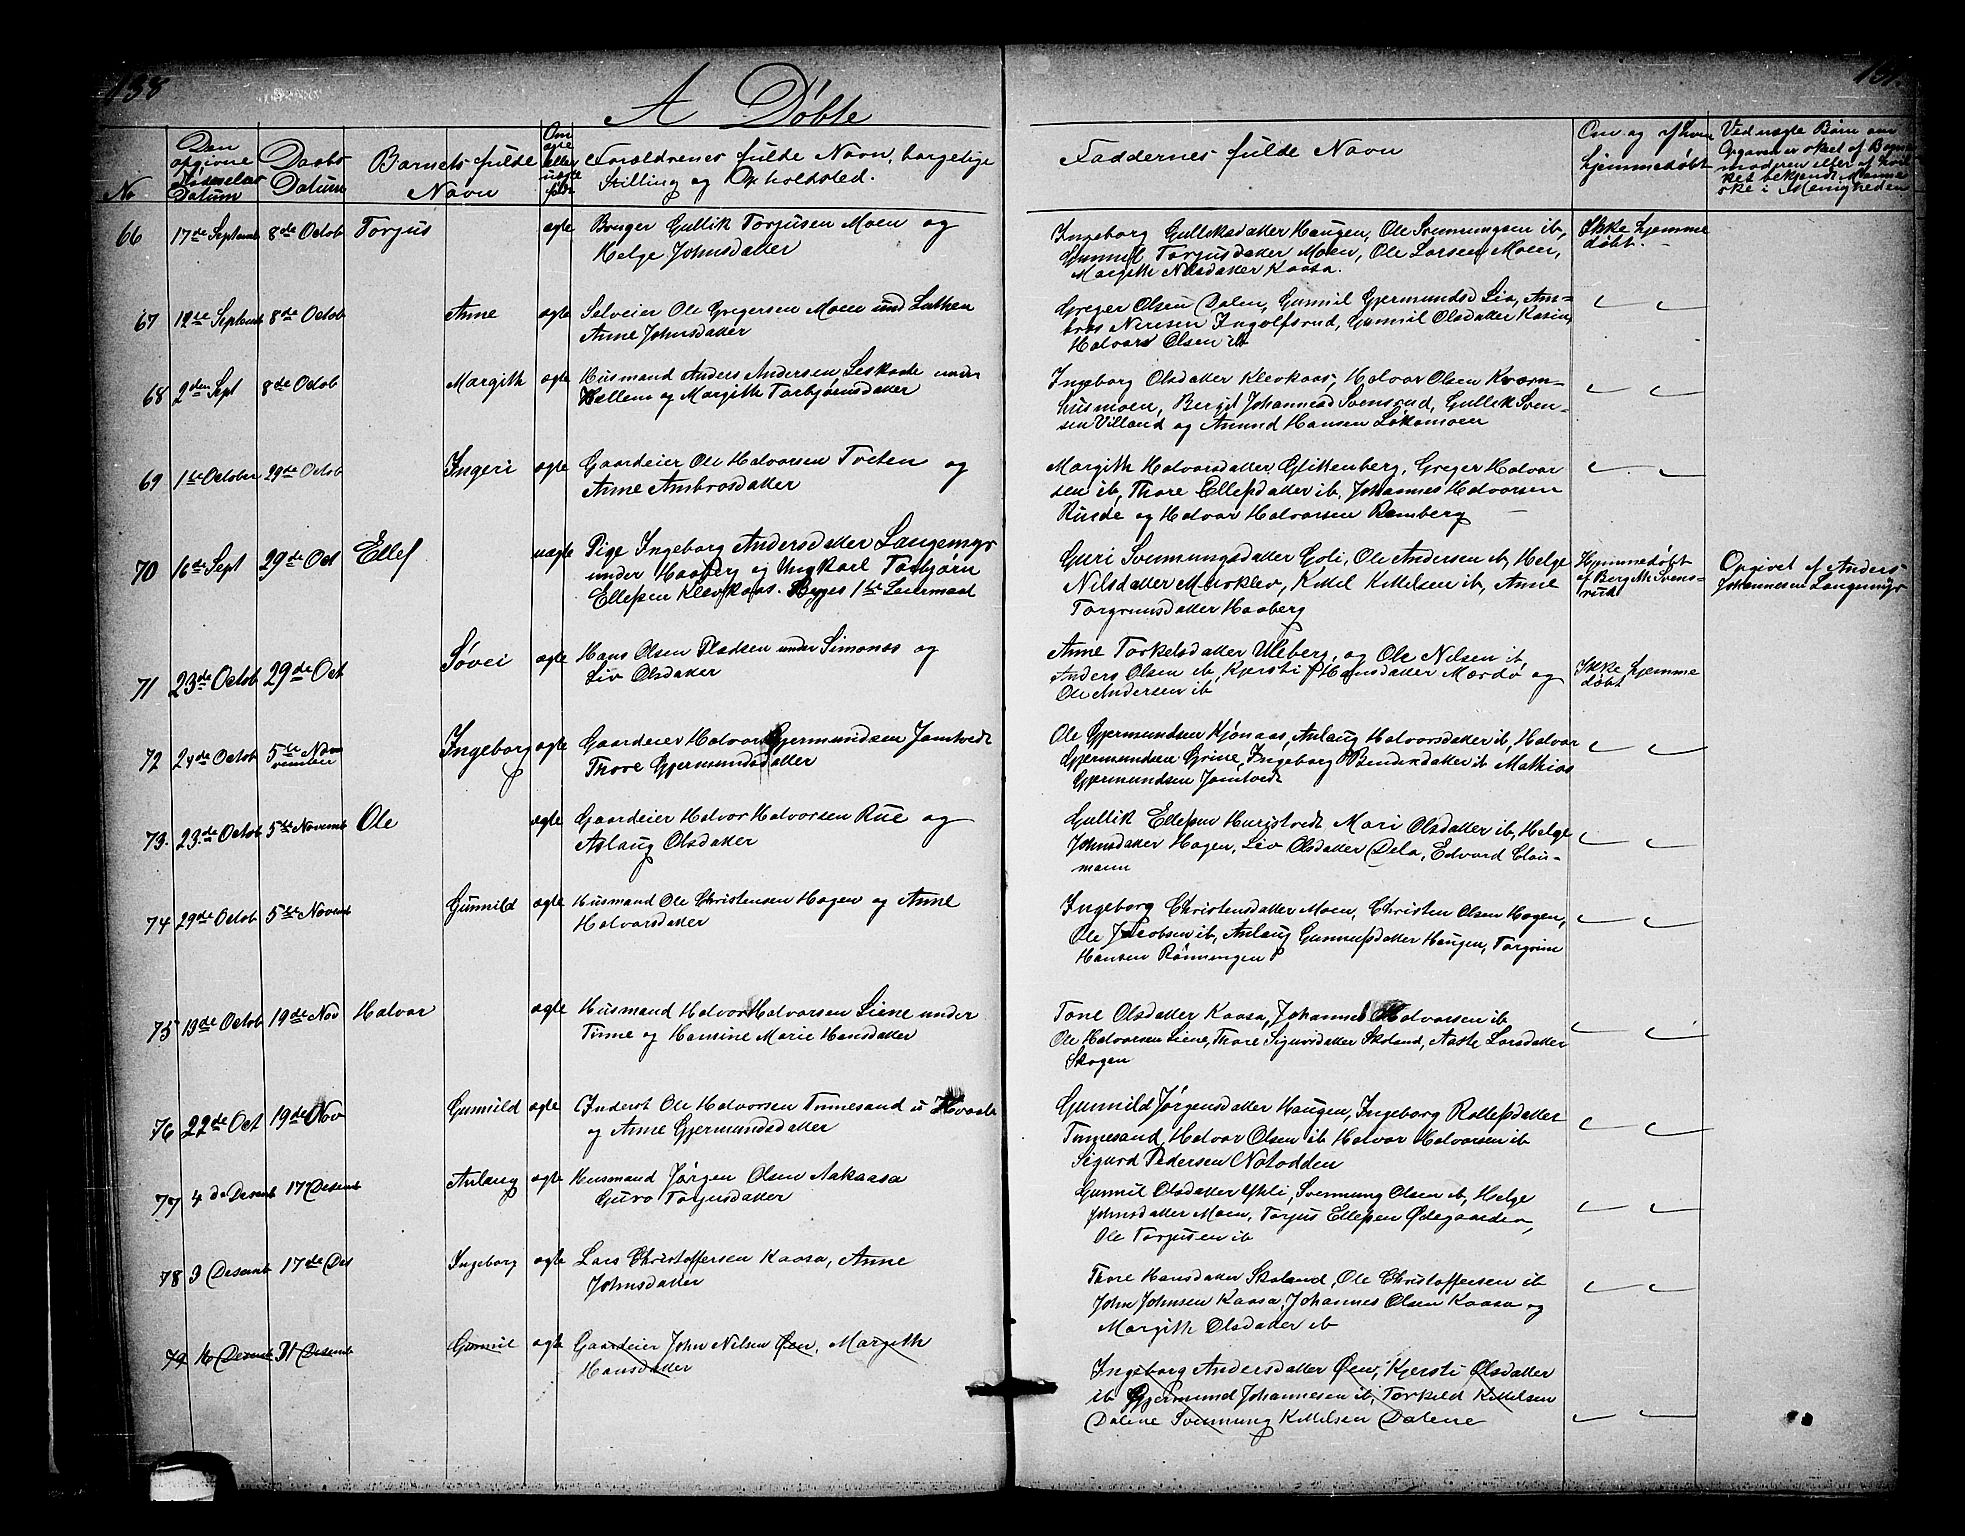 138
A Døbte
No
Den opgivne Fødselsdatum
Daabs Datum
Barnets fulde Navn
Om ægte eller uægte født
Forældrenes fulde Navn, borgelige
Stilling og Opholdsted.
Faddernes fulde Navn
Om og af hvem
hjemmedøbt
Ved uægte Børn om
Opgaven er sket af Barne
moderen eller af hvil
ket bekjendt Mænne
ske i Menigheden
66 17de Septemb 8de Octob Torjus ægte Bruger Gullik Torjusen Moen og
Helge Johnsdatter
Ingeborg Gulliksdatter Haugen, Ole Svennungsen ib,
Gunnil Torjusdatter Moen, Ole Larsen Moen,
Margith Nilsdatter Kaasa.
Ikke hjemme
døbt.
67 12te Septemb 8de Octob Anne ægte Selveier Ole Gregersen Moen und Lukken
Anne Johnsdatter
Greger Olsen Dalen, Gunnil Gjermundsd Lio, Am-
bros Neresen Ingolfsrud, Gunnil Olsdatter Kasin
Halvors Olsen ib
68 2den Sept 8de Octob Margith ægte Husmand Anders Andersen Leskode under
Hellem og Margith Torbjørnsdatter
Ingeborg Olsdatter Klevkaas, Halvor Olsen Kværn-
husmoen, Bergit Johannesd Svensrud, Gullik Sven-
sen Villand og Amund Hansen Løkamoen
69 1ste October 29de Octob Ingeri ægte Gaardeier Ole Halvorsen Tveten og
Anne Ambrosdatter
Margith Halvorsdatter Glittenberg, Greger Halvor
sen ib, Thore Ellefsdatter ib, Johannes Halvorsen
Rusde og Halvor Halvorsen Romberg
70 16de Sept 29de Oct Ellef uægte Pige Ingeborg Andersdatter Langemyr
under Haaberg og Ungkarl Torbjørn
Ellefsen Klevkaas. Begges 1ste Leiermaal
Guri Svennungsdatter Goli, Ole Andersen ib, Helge
Nilsdatter Muroklev, Kittil Kittelsen ib, Anne
Torgrimsdatter Haaberg
Hjemmedøbt
af Bergith Svens-
rud
Opgivet af Anders
Johannesen Langemyr
71 23de Octob 29de Oct Søvei ægte Hans Olsen Pladsen under Simones og
Liv Olsdatter
Anne Torkelsdatter Uleberg, og Ole Nilsen ib,
Anders Olsen ib, Kjersti Hansdatter Mærdø og
Ole Andersen ib
Ikke hjemme
døbt
72 24de Octob 5te Nov
vember
Ingeborg ægte Gaardeier Halvor Gjermundsen Jamtvedt
Thore Gjermundsdatter
Ole Gjermundsen Kjønaas, Aslaug Halvorsdatter ib, Halvor
Gjermundsen Grine, Ingeborg Bendixdatter ib Mathias
Gjermundsen Jamtvedt
73. 23de Octob 5te Novemb Ole ægte Gaardeier Halvor Halvorsen Rue og
Aslaug Olsdatter
Gullik Ellefsen Hurgstvedt Mari Olsdatter ib, Helge
Johnsdatter Hagen, Liv Olsdatter Dela, Edvard Clau-
mann
74 29de Octob 5te Novemb Gunnild ægte Husmand Ole Christensen Hagen og Anne
Halvorsdatter
Ingeborg Christensdatter Moen, Christen Olsen Hagen,
Ole Jacobsen ib, Aslaug Gunnufsdatter Haugen, Torgrim
Hansen Rønningen
75 13de Octob 19de Nov Halvor ægte Husmand Halvor Halvorsen Liene under
Tinne og Hansine Marie Hansdatter
Tone Olsdatter Kaasa, Johannes Halvorsen ib
Ole Halvorsen Liene, Thore Sigurdsdatter Skoland, Aaste Larsdatter
Skogen
76 22de Oct 19de Nov Gunnild ægte Inderst Ole Halvorsen Tinnesand u Hvaale
og Anne Gjermundsdatter
Gunnild Jørgensdatter Haugen, Ingeborg Rollefsdatter
Tinnesand, Halvor Olsen ib Halvor Halvorsen ib
Sigurd Pedersen Notodden
77 4de Desemb 17 Desemb Aslaug ægte Husmand Jørgen Olsen Aakaasa
Guro Torjusdatter
Gunnil Olsdatter Yli, Svennung Olsen ib, Helge
Johnsdatter Moen, Torjus Ellefsen Ødegaarden,
Ole Torjusen ib
78 3 Desemb 17de Des Ingeborg ægte Lars Christoffersen Kaasa, Anne
Johnsdatter
Thore Hansdatter Skoland, Ole Christoffersen ib
John Johnsen Kaasa, Johannes Olsen Kaasa og
Margith Olsdatter ib
79 16 Desemb 31 Desemb Gunnil ægte Gaardeier John Nilsen Øen, Margith
Hansdatter
Ingeborg Andersdatter Øen, Kjersti Olsdatter
ib Gjermund Johannesen ib, Torkild Kittilsen
Dalene Svennung Kittilsen Dalene